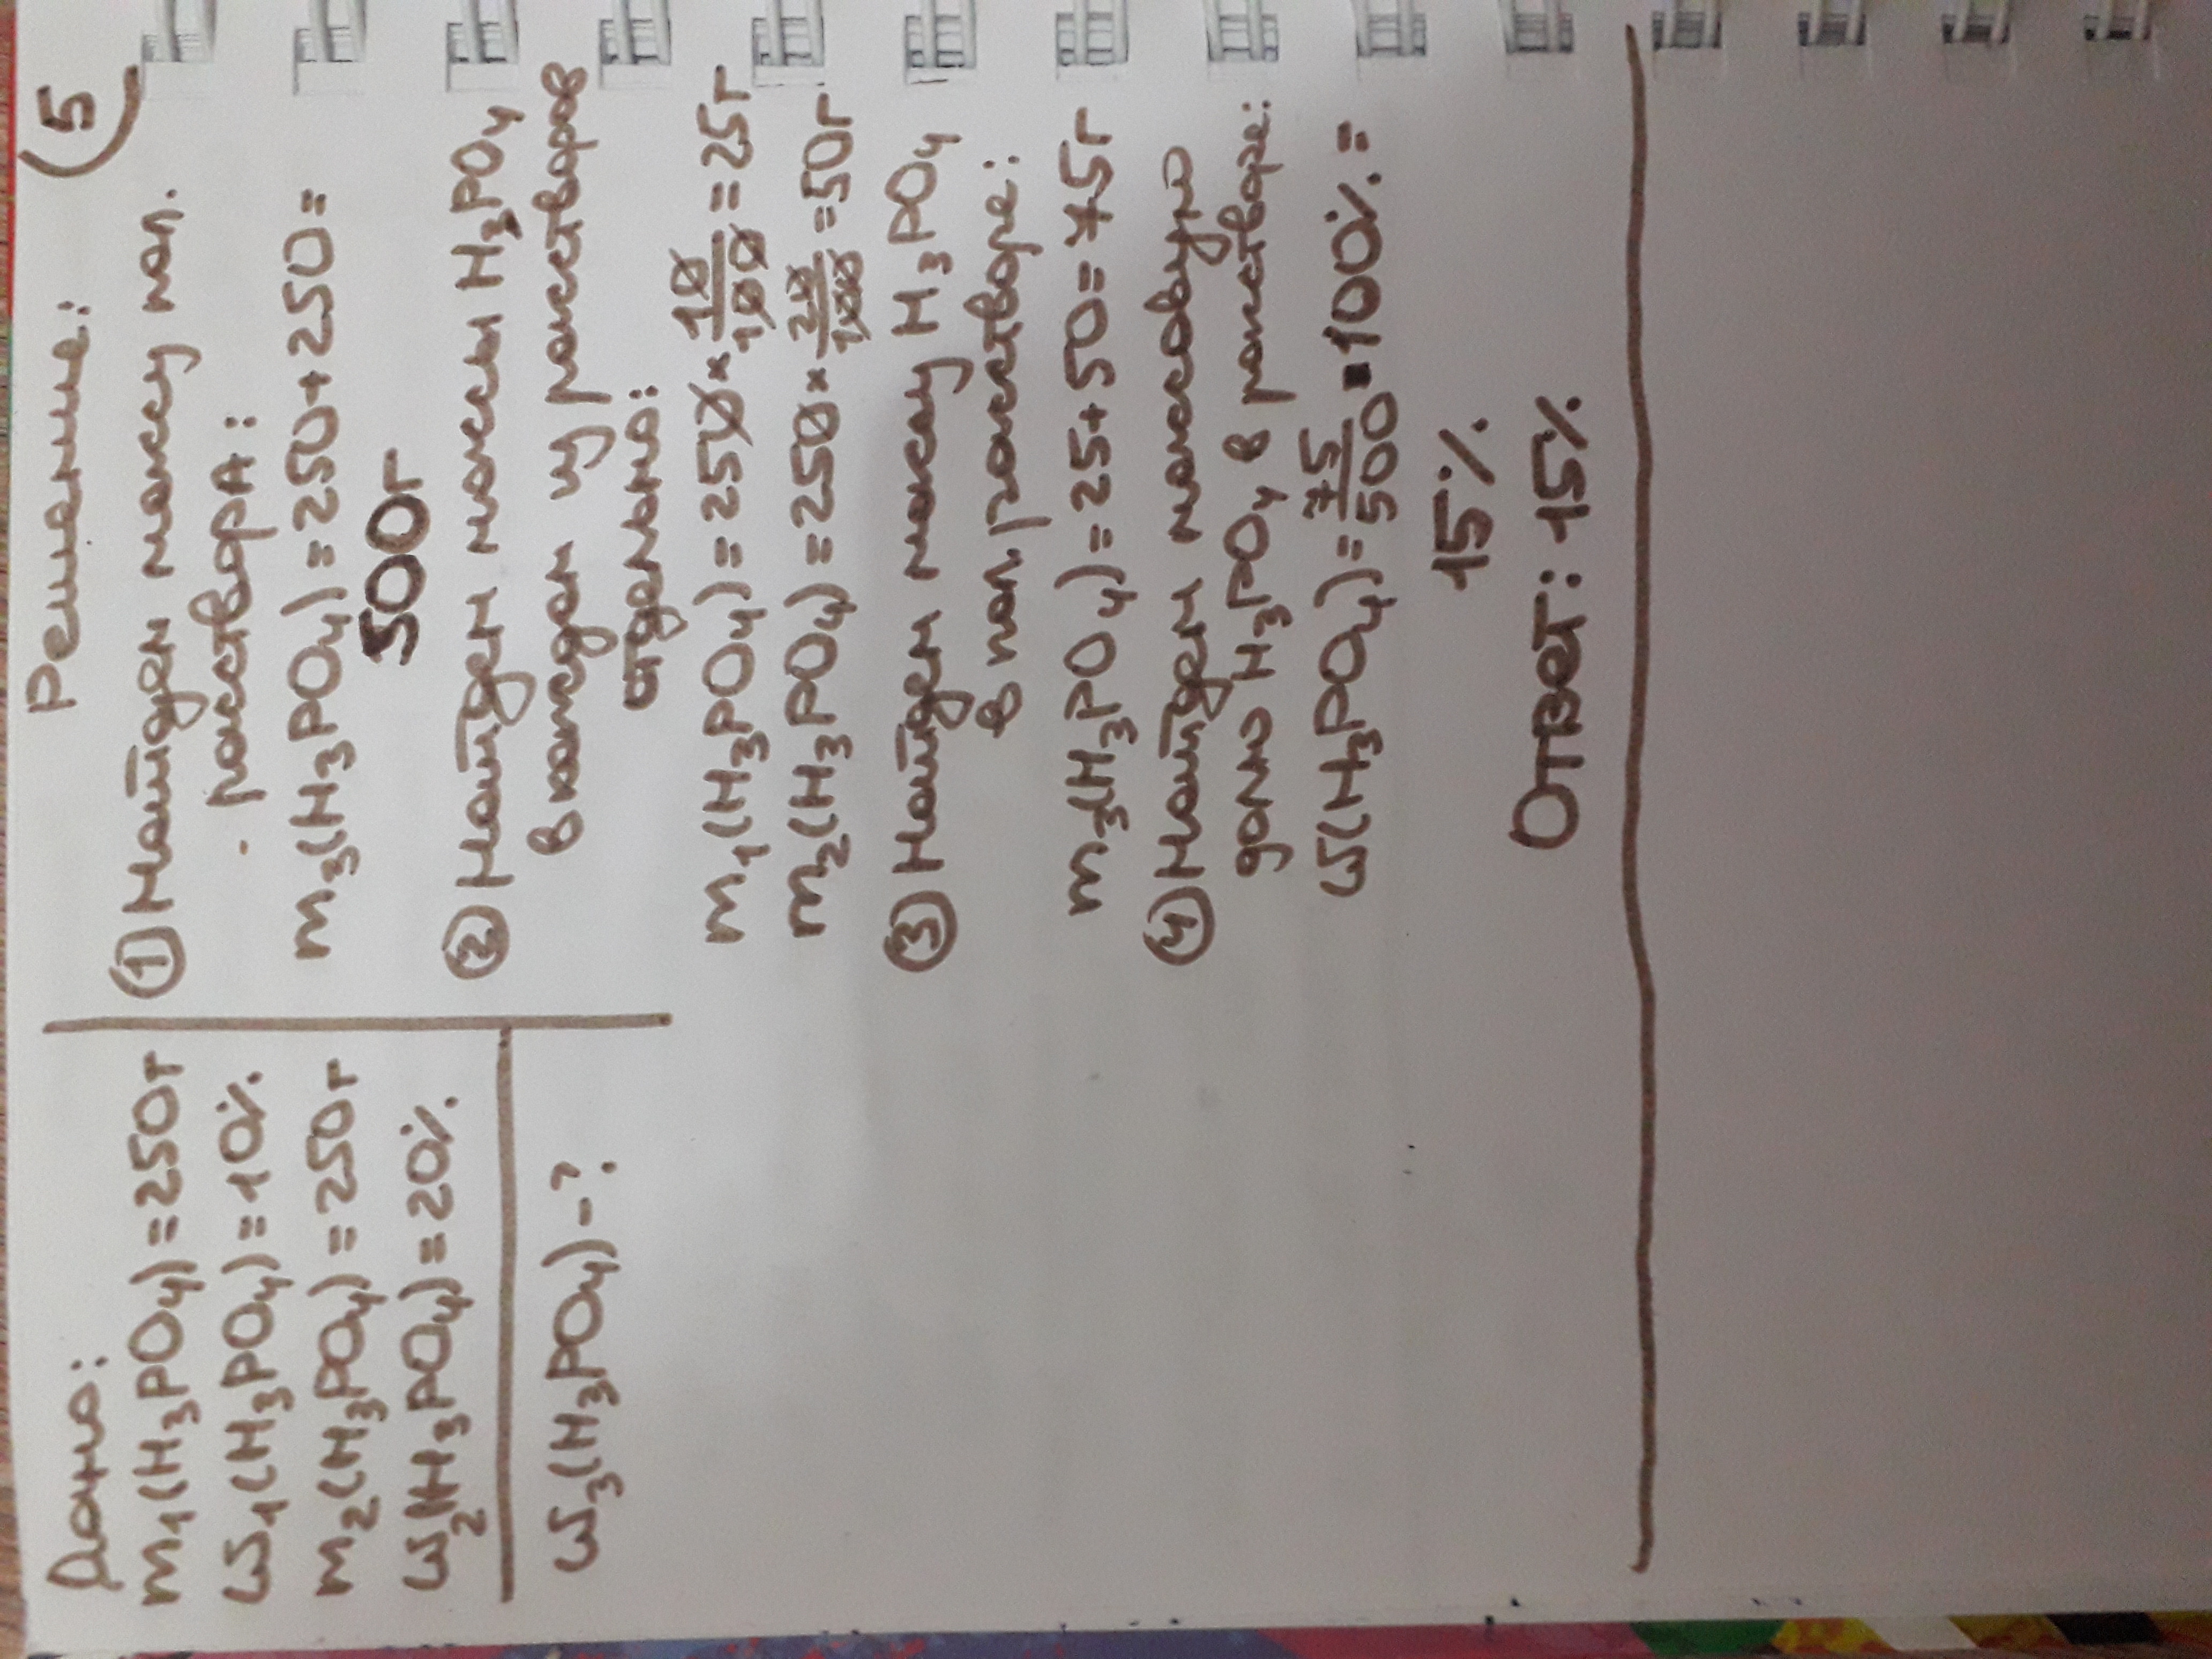 5
Дано:
m₁(H₃PO₄)=250г
ω₁(H₃PO₄)=10%
m₂(H₃PO₄)=250г
ω₂(H₃PO₄)=20%
ω₃(H₃PO₄)-?
Решение:
① Найдем массу пол.
раствора:
m₃(H₃PO₄)=250+250=
500г
② Найдем массы H₃PO₄
в каждом из растворов
отдельно:
m₁(H₃PO₄)=250×10/100=25г
m₂(H₃PO₄)=250×20/100=50г
③ Найдем массу H₃PO₄
в пол. растворе:
m₃(H₃PO₄)=25+50=75г
④ Найдем массовую
долю H₃PO₄ в растворе:
ω(H₃PO₄)=75/500·100%=
15%
Ответ: 15%